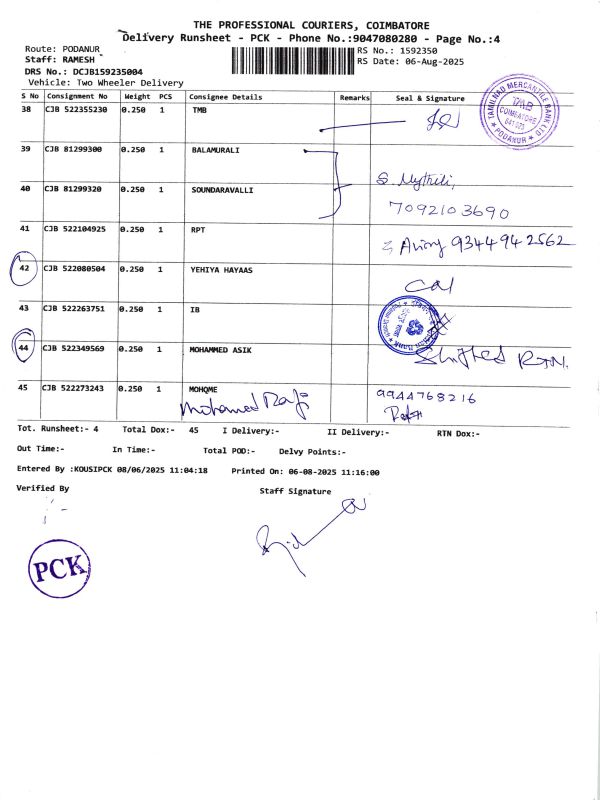 THE PROFESSIONAL COURIERS, COIMBATORE
Delivery Runsheet - PCK - Phone No.:9047080280 - Page No.:4
Route: PODANUR
RS No.: 1592350
Staff: RAMESH
RS Date: 06-Aug-2025
DRS No.: DCJB159235004
Vehicle: Two Wheeler Delivery
S No Consignment No Weight PCS Consignee Details Remarks Seal & Signature
38 CJB 522355230 0.250 1 TMB
TAMILNAD MERCANTILE BANK LTD
TAB
COIMBATORE
641 023
* PODANUR *
39 CJB 81299300 0.250 1 BALAMURALI
S Mythili,
40 CJB 81299320 0.250 1 SOUNDARAVALLI
7092103690
41 CJB 522104925 0.250 1 RPT
9344942562
42 CJB 522080504 0.250 1 YEHIYA HAYAAS
Cal
43 CJB 522263751 0.250 1 IB
44 CJB 522349569 0.250 1 MOHAMMED ASIK
Shifted RTN.
45 CJB 522273243 0.250 1 MOHQME
Mohamed Rafi
9944768216
Tot. Runsheet:- 4 Total Dox:- 45 I Delivery:- II Delivery:- RTN Dox:-
Out Time:- In Time:- Total POD:- Delvy Points:-
Entered By :KOUSIPCK 08/06/2025 11:04:18 Printed On: 06-08-2025 11:16:00
Verified By
Staff Signature
PCK